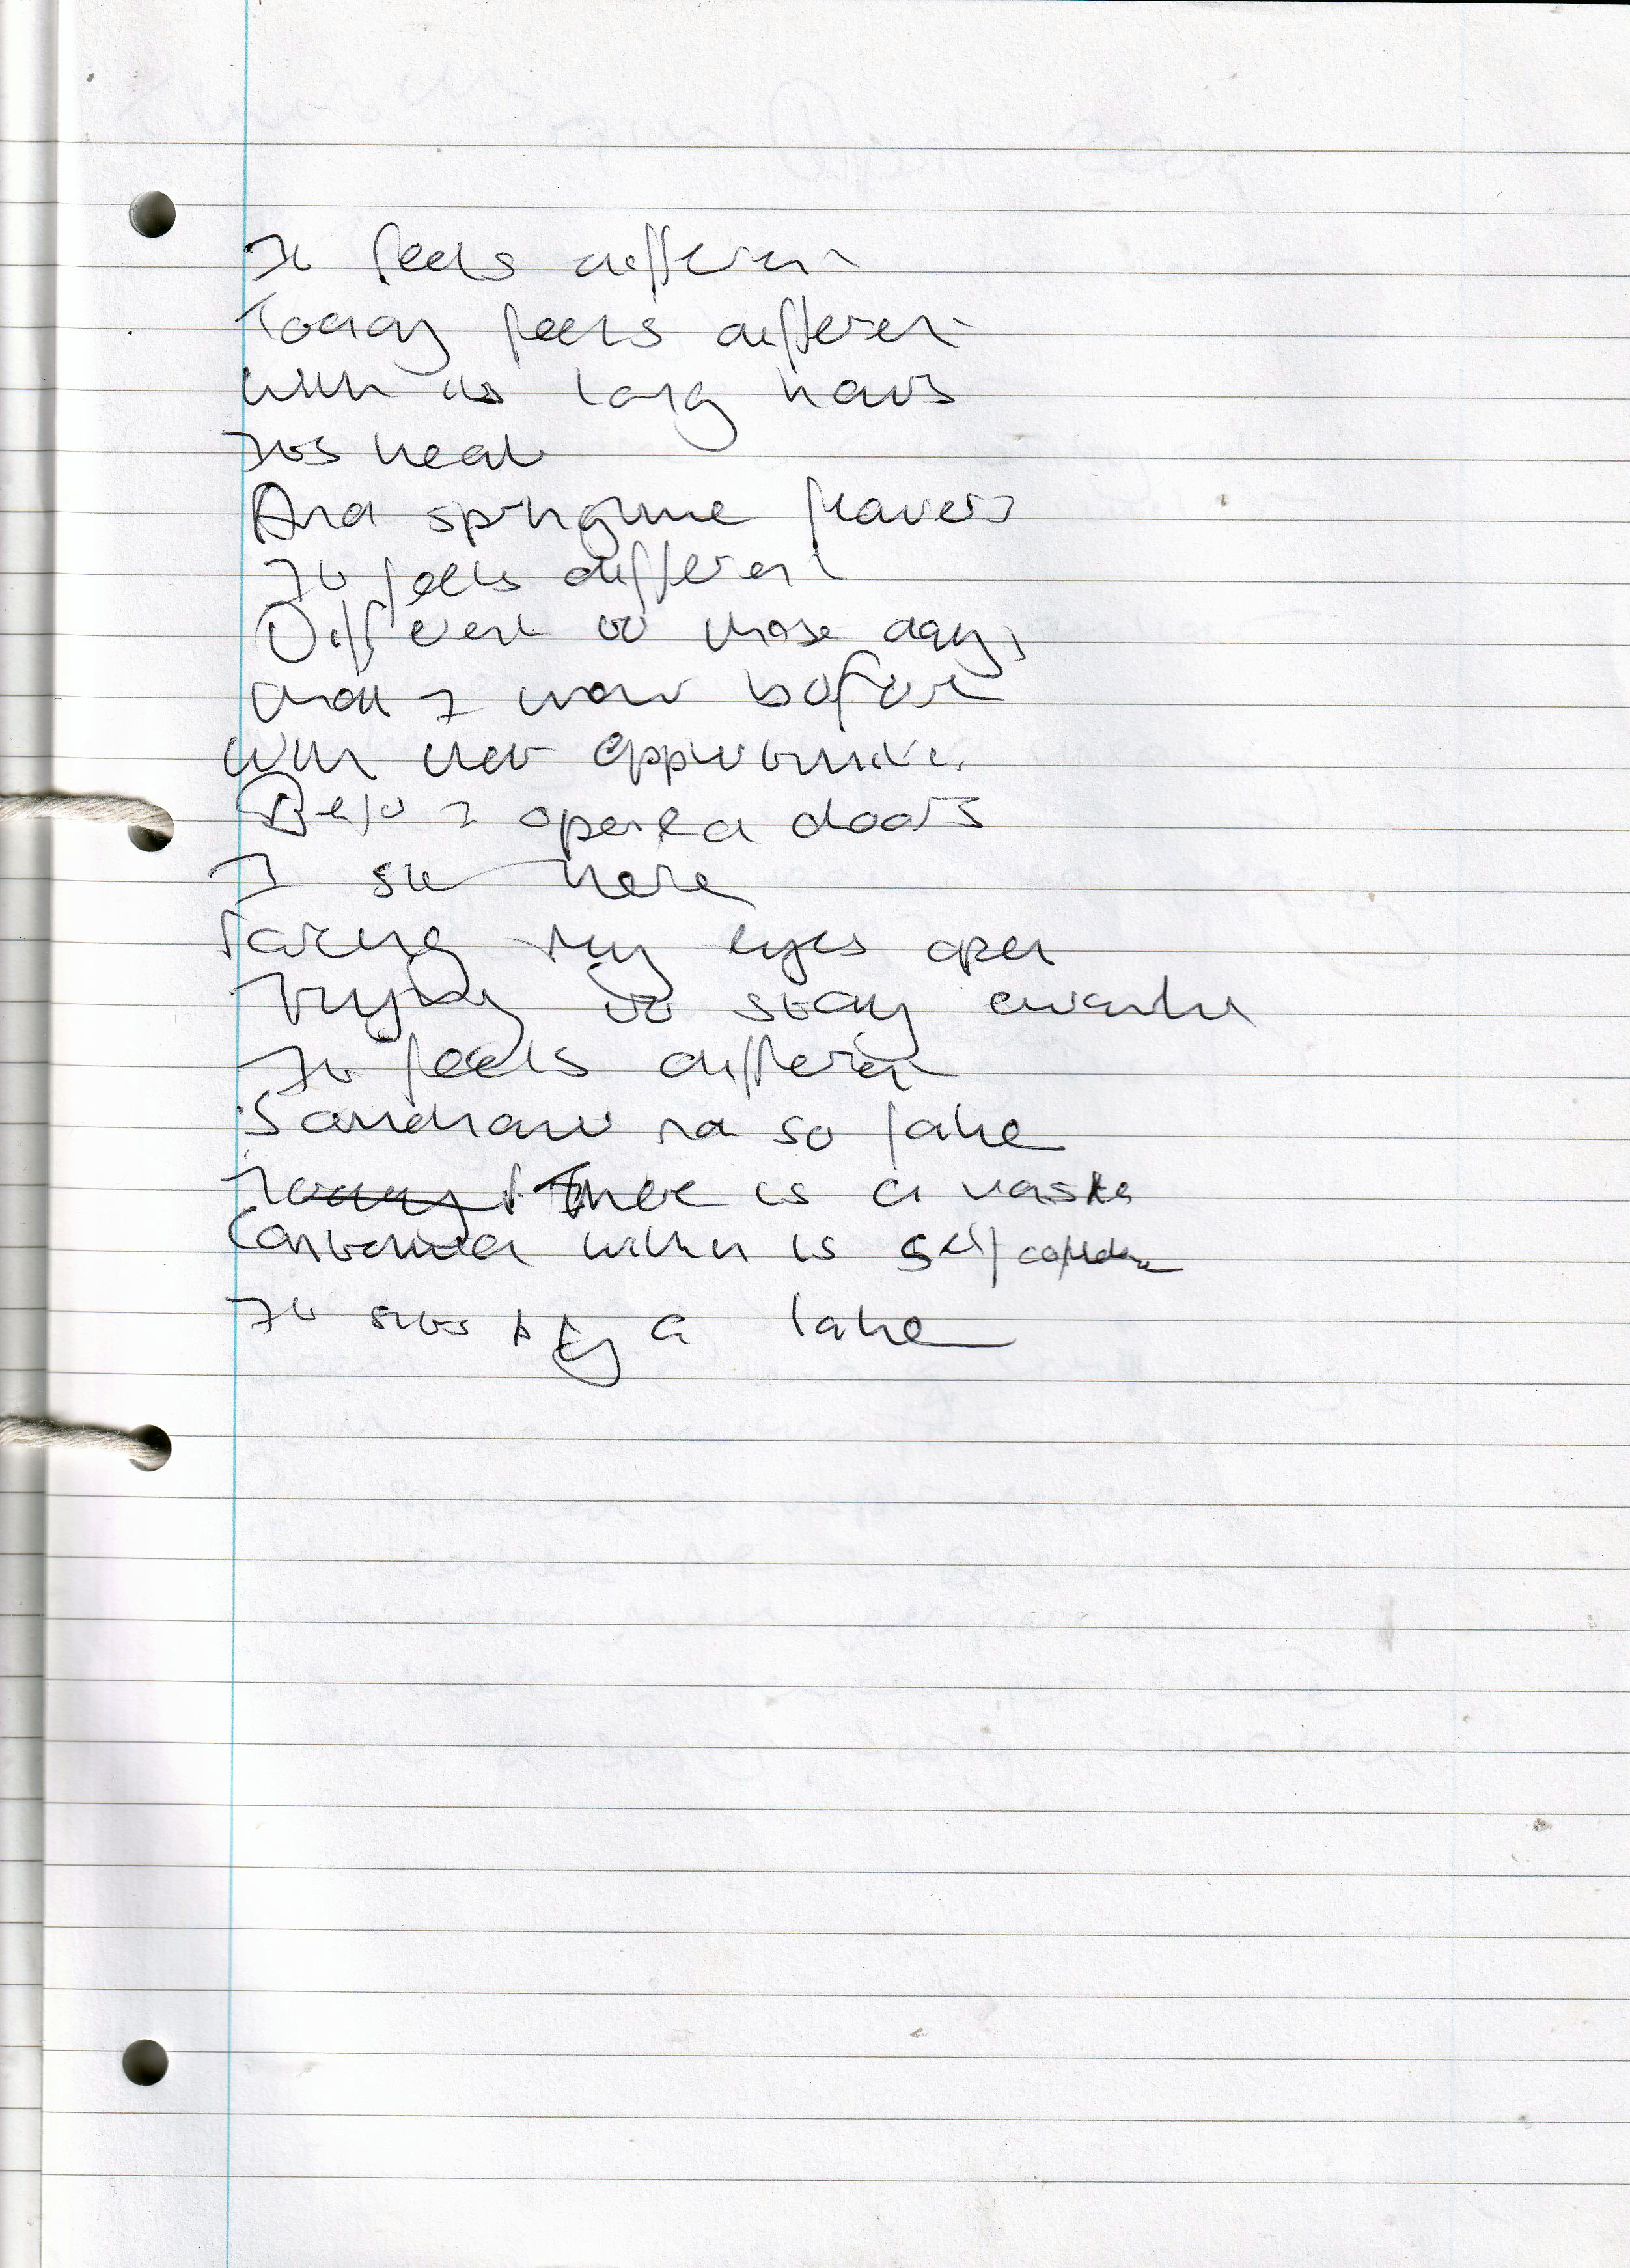 It feels different
Today feels different
With its long hours
Its heat
And springtime flowers
It feels different
Different to those days
that I now before
With new opportunities
Before I opened doors
I sit here
Forcing my eyes open
Trying to stay awake
It feels different
Somehow not so fake
Today there is a
Contented within is self confidence
It sits by a lake